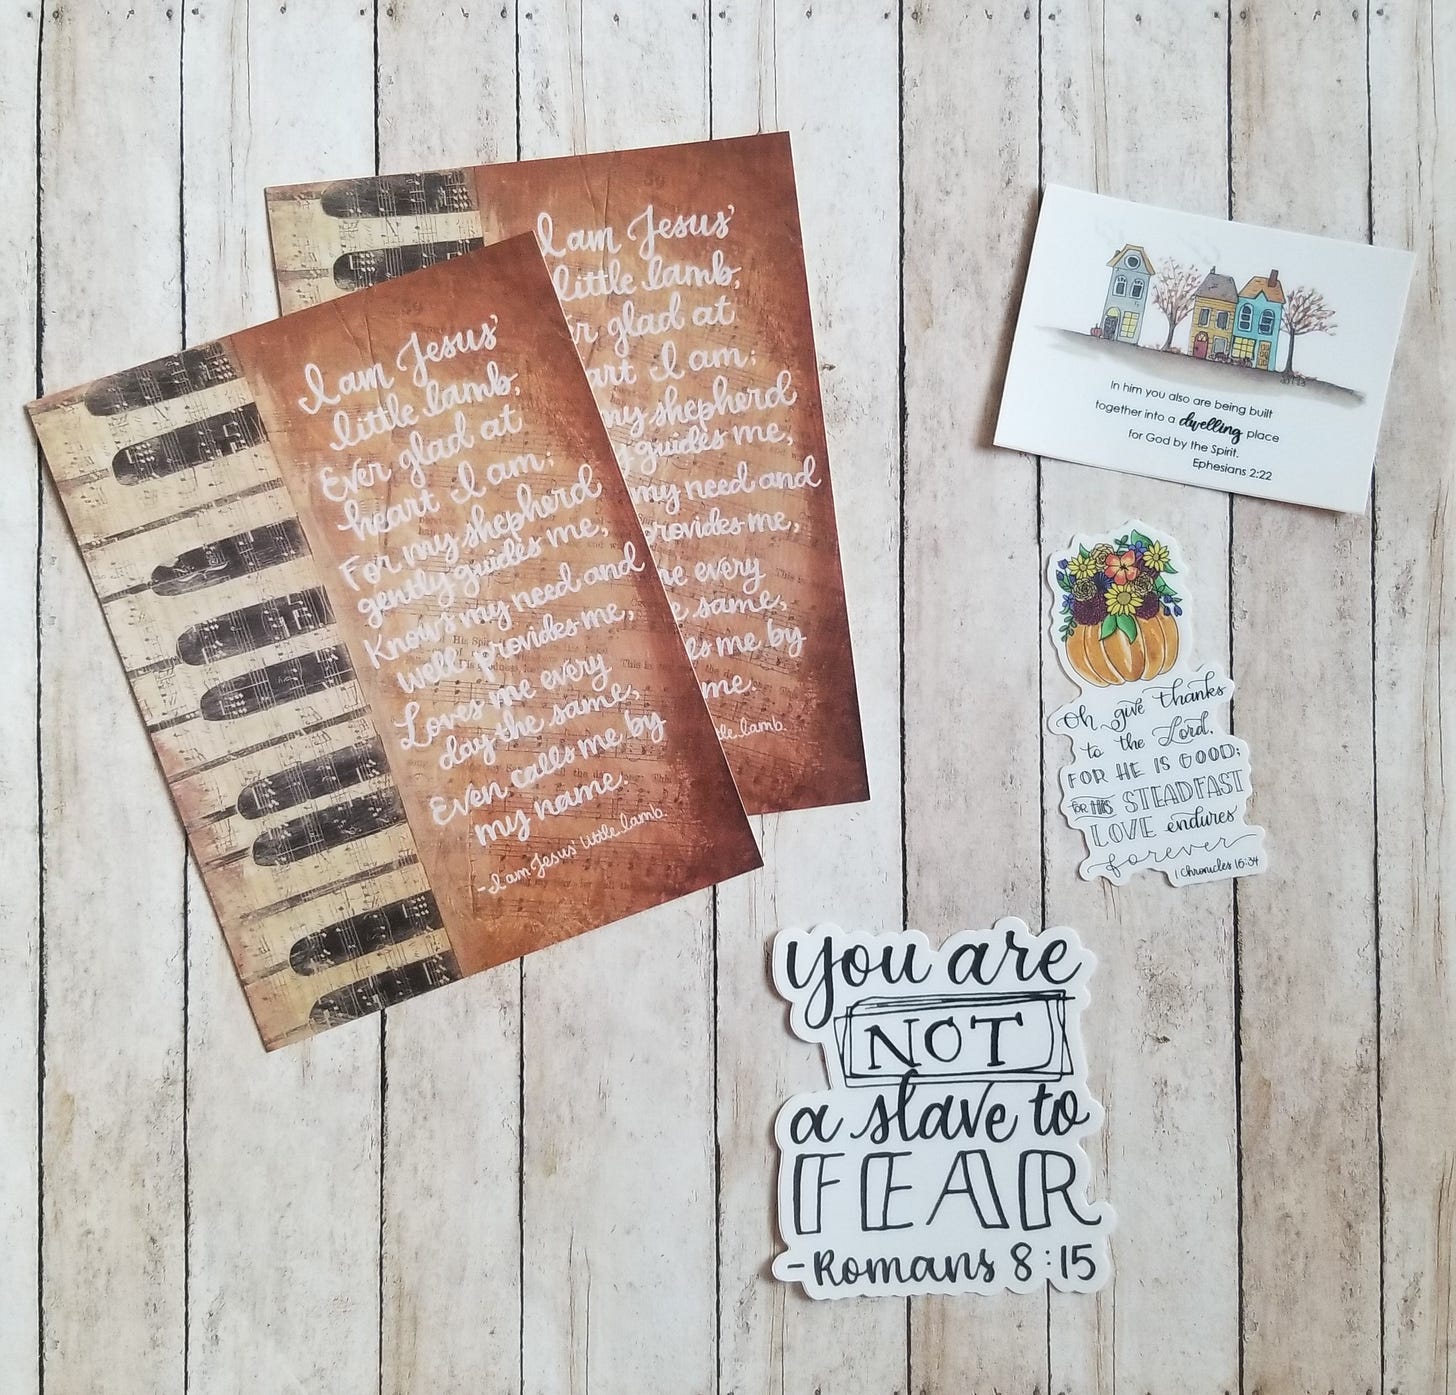 I am Jesus'
little lamb,
Ever glad at
heart I am;
For my shepherd
gently guides me,
Knows my need and
well provides me,
Loves me every
day the same,
Even calls me by
my name.
-I am Jesus' little lamb.
I am Jesus'
little lamb,
glad at
I am;
my shepherd
guides me,
my need and
provides me,
me every
same,
me by
me.
lamb.
In him you also are being built
together into a dwelling place
for God by the Spirit.
Ephesians 2:22
Oh give thanks
to the Lord,
FOR HE IS GOOD;
for HIS STEADFAST
LOVE endures
forever
1 Chronicles 16:34
you are
NOT
a slave to
FEAR
-Romans 8:15